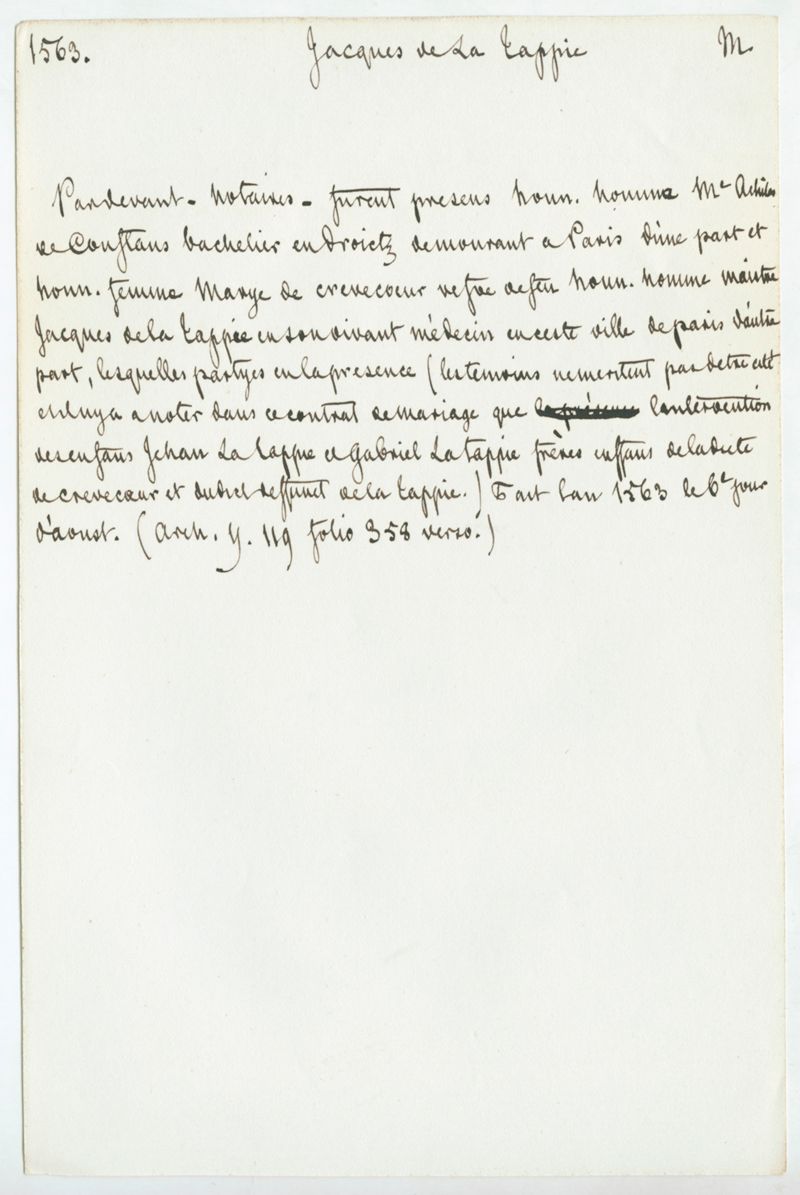 1563. Jacques de La Tappie M
Pardevant - notaires - furent presens honn. homme Me Achilles
de Conflans bachelier en droictz demourant a Paris d'une part et
honn. femme Marye de crevecoeur vefve de feu honn. homme maistre
Jacques de la Tappie en son vivant médecin en ceste ville de paris d'autre
part, lesquelles partyes en la presence (les temoins ne meritent pas detre cités
et il ny a a noter dans ce contrat de mariage que la présence l'intervention
des enfans Jehan La Tappie et Gabriel La tappie frères enffans de ladicte
de crevecœur et dudict deffunct de la Tappie.) Fait l'an 1563 le 6e jour
d'aoust. (Arch. Y. 119 folio 358 verso.)